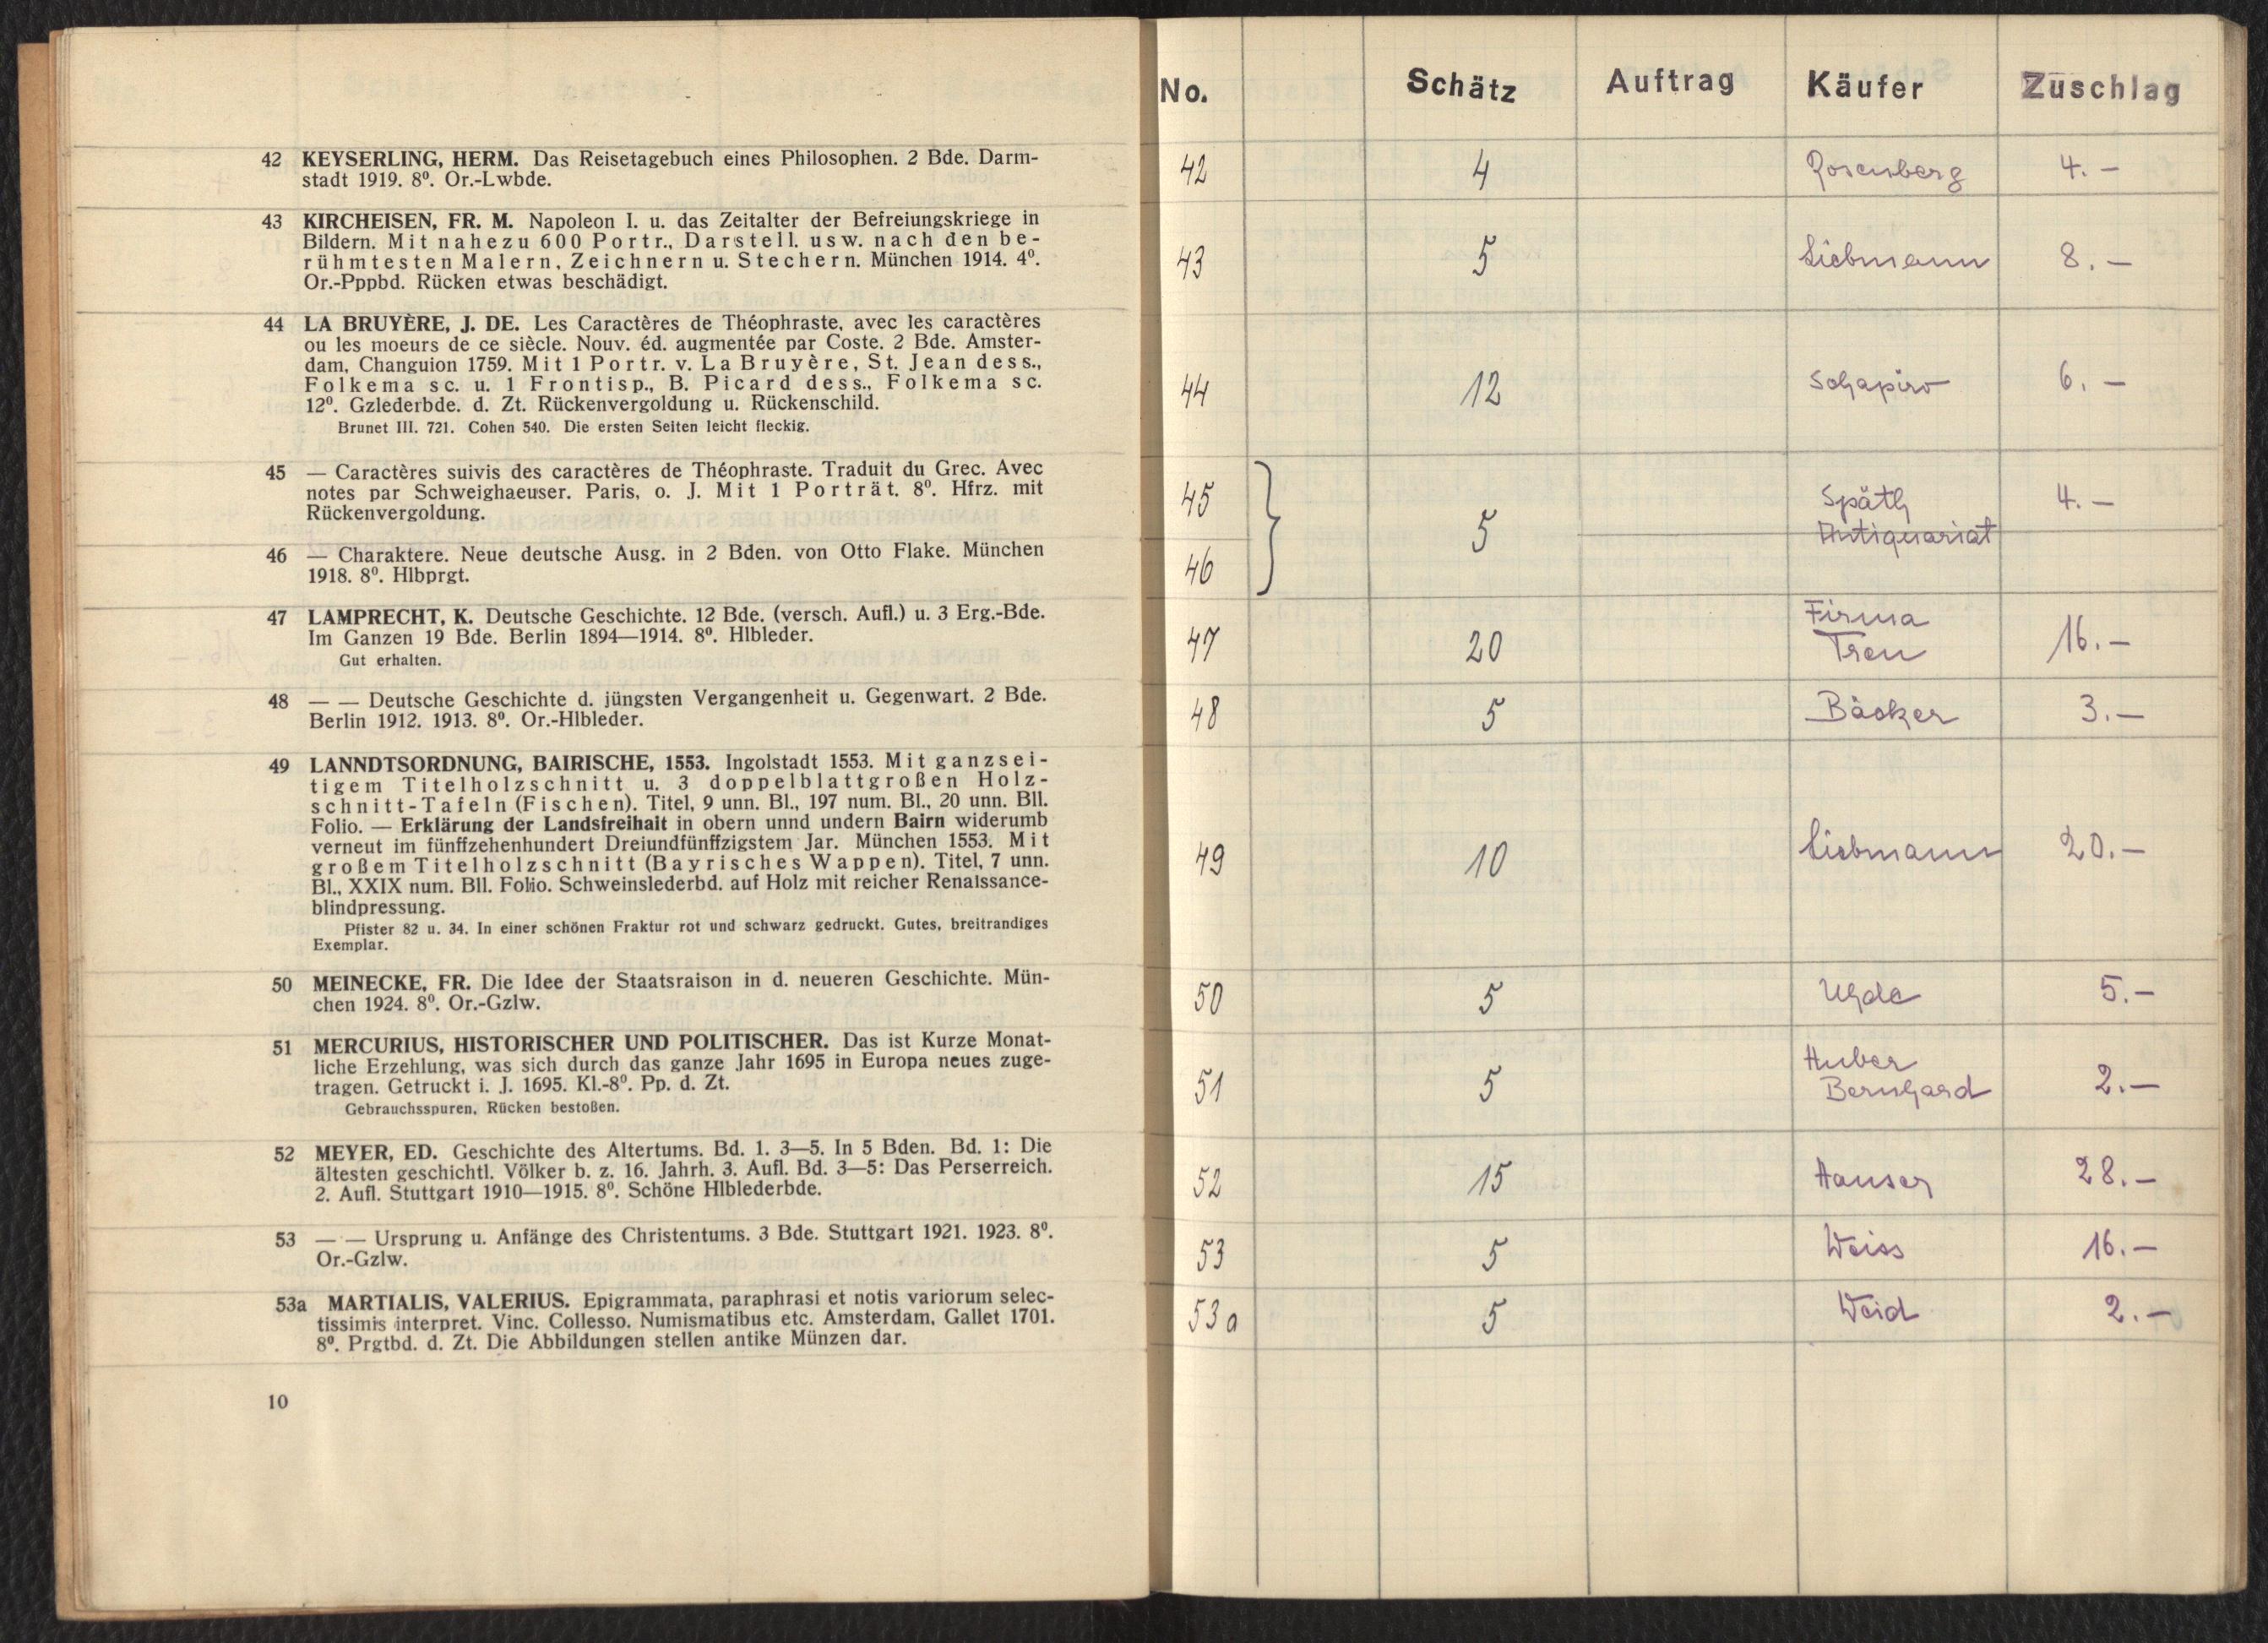 42 KEYSERLING, HERM. Das Reisetagebuch eines Philosophen. 2 Bde. Darm-
stadt 1919. 8⁰. Or.-Lwbde.
43 KIRCHEISEN, FR. M. Napoleon I. u. das Zeitalter der Befreiungskriege in
Bildern. Mit nahezu 600 Portr., Darstell. usw. nach den be-
rühmtesten Malern, Zeichnern u. Stechern. München 1914. 4⁰.
Or.-Pppbd. Rücken etwas beschädigt.
44 LA BRUYÈRE, J. DE. Les Caractères de Théophraste, avec les caractères
ou les moeurs de ce siècle. Nouv. éd. augmentée par Coste. 2 Bde. Amster-
dam, Changuion 1759. Mit 1 Portr. v. La Bruyère, St. Jean dess.,
Folkema sc. u. 1 Frontisp., B. Picard dess., Folkema sc.
12⁰. Gzlederbde. d. Zt. Rückenvergoldung u. Rückenschild.
Brunet III. 721. Cohen 540. Die ersten Seiten leicht fleckig.
45 — Caractères suivis des caractères de Théophraste. Traduit du Grec. Avec
notes par Schweighaeuser. Paris, o. J. Mit 1 Porträt. 8⁰. Hfrz. mit
Rückenvergoldung.
46 — Charaktere. Neue deutsche Ausg. in 2 Bden. von Otto Flake. München
1918. 8⁰. Hlbprgt.
47 LAMPRECHT, K. Deutsche Geschichte. 12 Bde. (versch. Aufl.) u. 3 Erg.-Bde.
Im Ganzen 19 Bde. Berlin 1894—1914. 8⁰. Hlbleder.
Gut erhalten.
48 — — Deutsche Geschichte d. jüngsten Vergangenheit u. Gegenwart. 2 Bde.
Berlin 1912. 1913. 8⁰. Or.-Hlbleder.
49 LANNDTSORDNUNG, BAIRISCHE, 1553. Ingolstadt 1553. Mit ganzsei-
tigem Titelholzschnitt u. 3 doppelblattgroßen Holz-
schnitt-Tafeln (Fischen). Titel, 9 unn. Bl., 197 num. Bl., 20 unn. Bll.
Folio. — Erklärung der Landsfreihait in obern unnd undern Bairn widerumb
verneut im fünffzehenhundert Dreiundfünffzigstem Jar. München 1553. Mit
großem Titelholzschnitt (Bayrisches Wappen). Titel, 7 unn.
Bl., XXIX num. Bll. Folio. Schweinslederbd. auf Holz mit reicher Renaissance-
blindpressung.
Pfister 82 u. 34. In einer schönen Fraktur rot und schwarz gedruckt. Gutes, breitrandiges
Exemplar.
50 MEINECKE, FR. Die Idee der Staatsraison in d. neueren Geschichte. Mün-
chen 1924. 8⁰. Or.-Gzlw.
51 MERCURIUS, HISTORISCHER UND POLITISCHER. Das ist Kurze Monat-
liche Erzehlung, was sich durch das ganze Jahr 1695 in Europa neues zuge-
tragen. Getruckt i. J. 1695. Kl.-8⁰. Pp. d. Zt.
Gebrauchsspuren, Rücken bestoßen.
52 MEYER, ED. Geschichte des Altertums. Bd. 1. 3—5. In 5 Bden. Bd. 1: Die
ältesten geschichtl. Völker b. z. 16. Jahrh. 3. Aufl. Bd. 3—5: Das Perserreich.
2. Aufl. Stuttgart 1910—1915. 8⁰. Schöne Hlblederbde.
53 — — Ursprung u. Anfänge des Christentums. 3 Bde. Stuttgart 1921. 1923. 8⁰.
Or.-Gzlw.
53a MARTIALIS, VALERIUS. Epigrammata, paraphrasi et notis variorum selec-
tissimis interpret. Vinc. Collesso. Numismatibus etc. Amsterdam, Gallet 1701.
8⁰. Prgtbd. d. Zt. Die Abbildungen stellen antike Münzen dar.
10
No. Schätz Auftrag Käufer Zuschlag
42 4 Rosenberg 4.-
43 5 Liebmann 8.-
44 12 Schapiro 6.-
45 Späth 4.-
5 Antiquariat
46
Firma
47 20 Treu 16.-
48 5 Bäcker 3.-
49 10 Liebmann 20.-
50 5 Uhde 5.-
Huber
51 5 Bernhard 2.-
52 15 Hauser 28.-
53 5 Weiss 16.-
53a 5 Weid 2.-